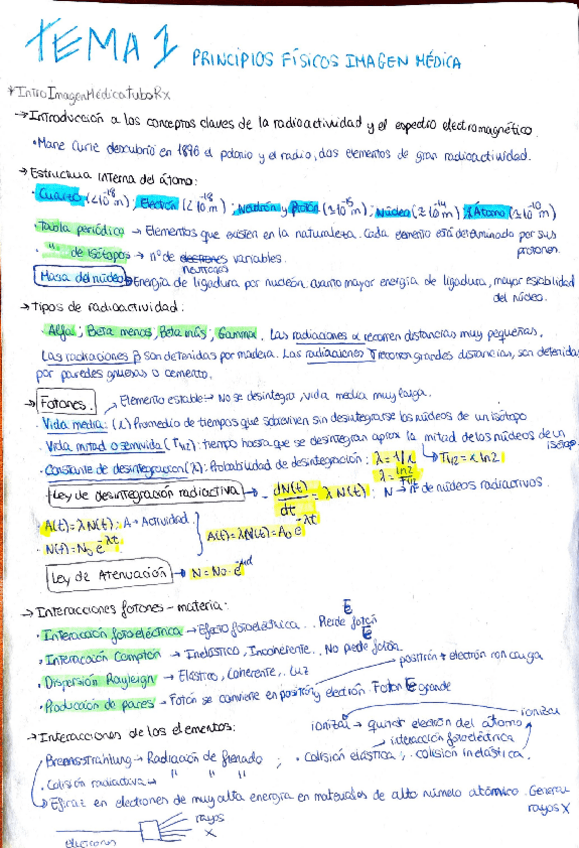 TEMA 1 PRINCIPIOS FÍSICOS IMAGEN MÉDICA
*IntroImagenMédicatuboRx
→ Introducción a los conceptos claves de la radioactividad y el espectro electromagnético.
• Marie Curie descubrió en 1896 el polonio y el radio, dos elementos de gran radioactividad.
→ Estructura interna del átomo:
• Cuarzo (≤10⁻¹⁸m); Electrón (≤10⁻¹⁸m); Neutrón y protón (≥10⁻¹⁵m); Núcleo (≥10⁻¹⁴m); Átomo (≥10⁻¹⁰m)
• Tabla periódica → Elementos que existen en la naturaleza. Cada elemento está determinado por sus
protones.
• " de isótopos → nº de electrones variables.
neutrones
Masa del núcleo → Energía de ligadura por nucleón. Cuanto mayor energía de ligadura, mayor estabilidad
del núcleo.
→ Tipos de radioactividad:
• Alfa; Beta menos; Beta más; Gamma. Las radiaciones α recorren distancias muy pequeñas.
Las radiaciones β son detenidas por madera. Las radiaciones γ recorren grandes distancias, son detenidas
por paredes gruesas o cemento.
→ Fotones. Elemento estable → No se desintegra, vida media muy larga.
• Vida media: Promedio de tiempos que sobreviven sin desintegrarse los núcleos de un isótopo
• Vida mitad o semivida (T1/2): tiempo hasta que se desintegran aprox la mitad de los núcleos de un
isótopo.
• Constante de desintegración (λ): Probabilidad de desintegración:
λ = ln2/T1/2
Ley de desintegración radiactiva → -dN(t)/dt = λN(t): N → nº de núcleos radiactivos.
• A(t)=λN(t): A → Actividad.
A(t)=λN(t)=A₀e^-λt
• N(t)=N₀e^-λt
Ley de Atenuación → N=N₀·e^-μd
→ Interacciones fotones-materia:
• Interacción fotoeléctrica → Efecto fotoeléctrica.. Pierde fotón
E
• Interacción Compton → Inelástico, Incoherente.. No pierde fotón.
E
• Dispersión Rayleigh → Elástico, Coherente.. Luz
positrón + electrón con carga
• Producción de pares → Fotón se convierte en positrón y electrón. Fotón E grande
→ Interacciones de los elementos:
ionizar → quitar electrón del átomo
ionizar
interacción fotoeléctrica
Bremsstrahlung → Radiación de frenado; • Colisión elástica; colisión inelástica.
• Colisión radiactiva → " " "
Eficaz en electrones de muy alta energía en materiales de alto número atómico. Genera
rayos X
rayos
X
electrones